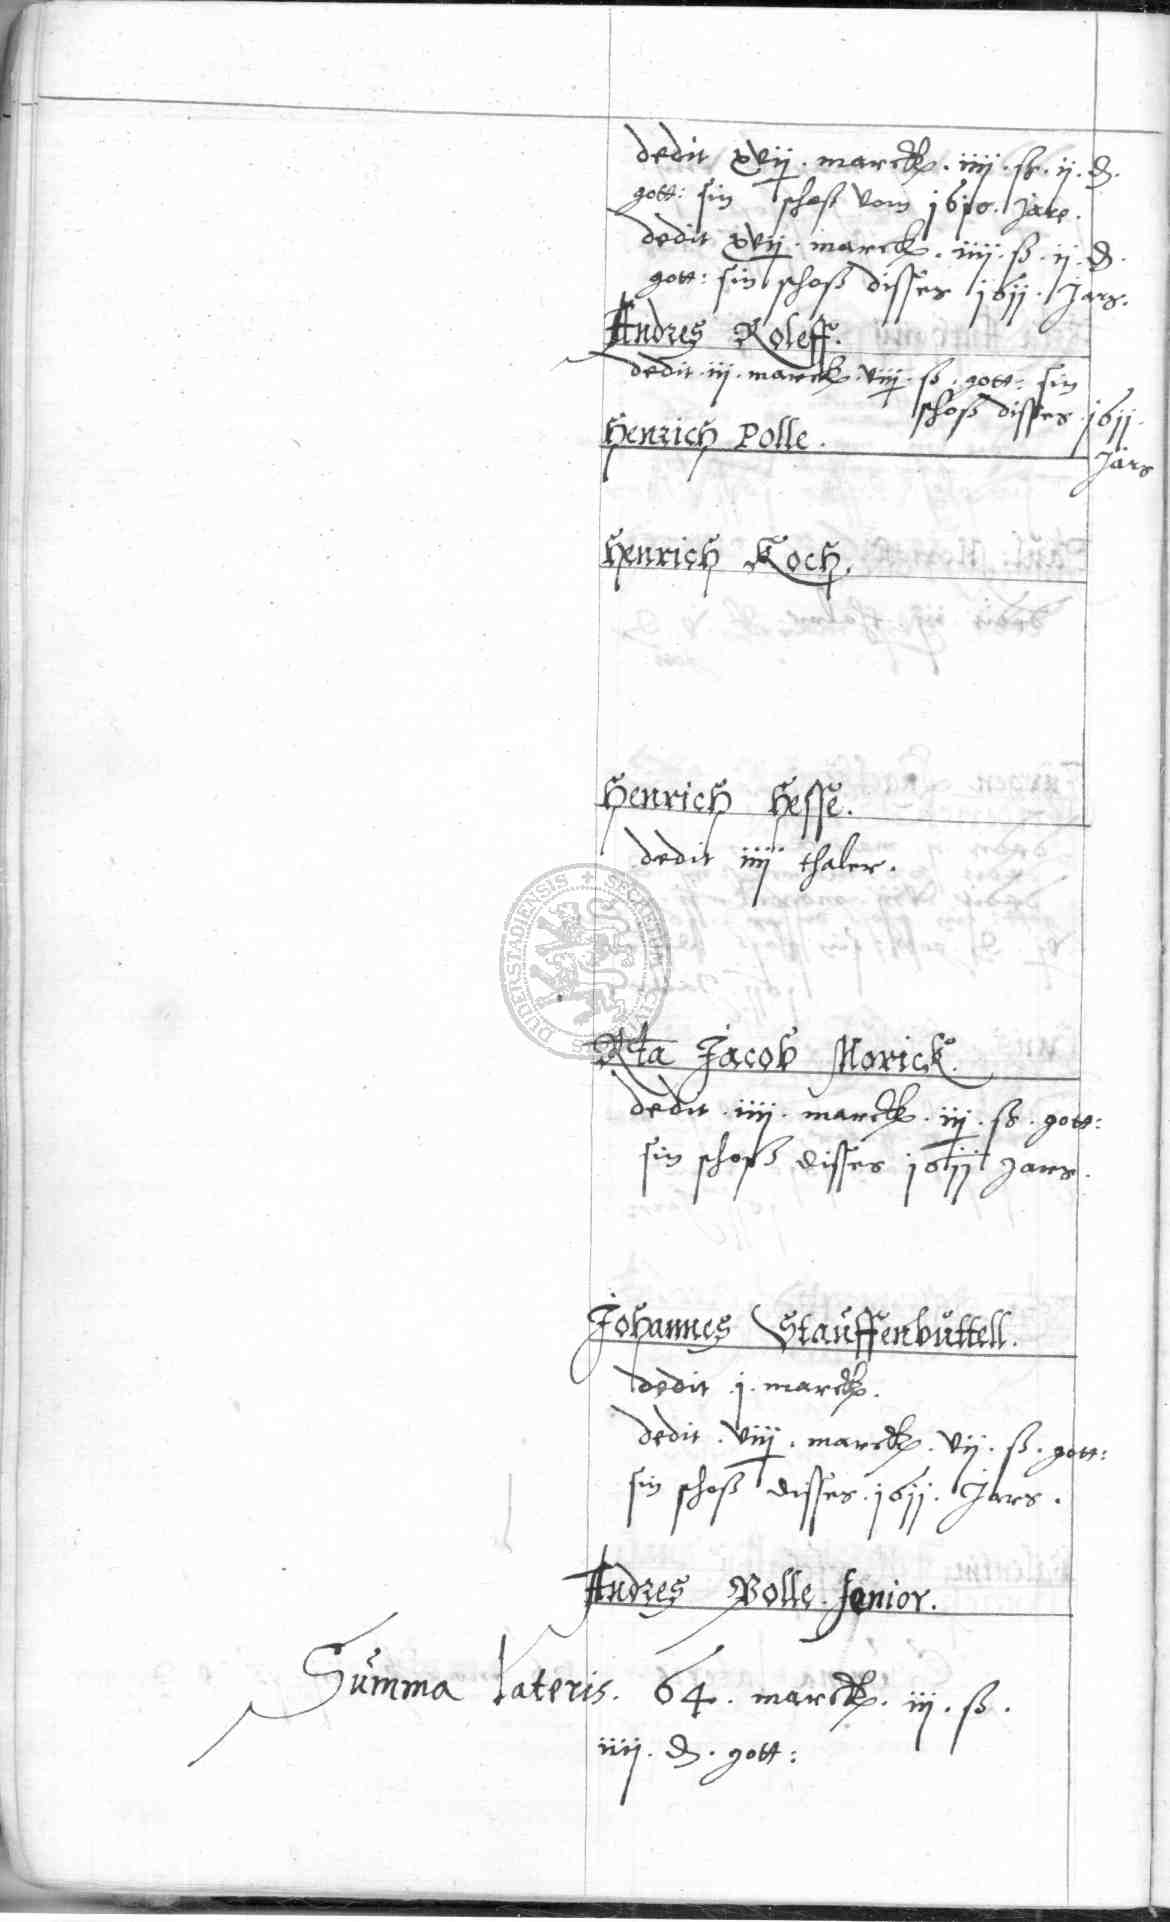 dedit xvij. marck. iiij. ß. ij. d.
gott: sin schoß vom 1610. Jare.
dedit xvij. marck. iiij. ß. ij. d.
gott: sin schoß disses 1611. Jars.
Andres Roleff.
dedit. iij. marck. viij. ß. gott: sin
schoß disses. 1611.
Jars
Henrich Polle.
Henrich Koch.
Henrich Hesse.
dedit iiij thaler.
SECRETUM CIVITATIS DUDERSTADIENSIS
Rta Jacob Morick.
dedit. iiij. marck. iij. ß. gott:
sin schoß disses 1611 Jars.
Johannes Stauffenbuttell.
dedit. j. marck.
dedit. viij. marck. vij. ß. gott:
sin schoß disses. 1611. Jars.
Andres Polle. senior.
Summa lateris. 64. marck. iij. ß.
iiij. d. gott: